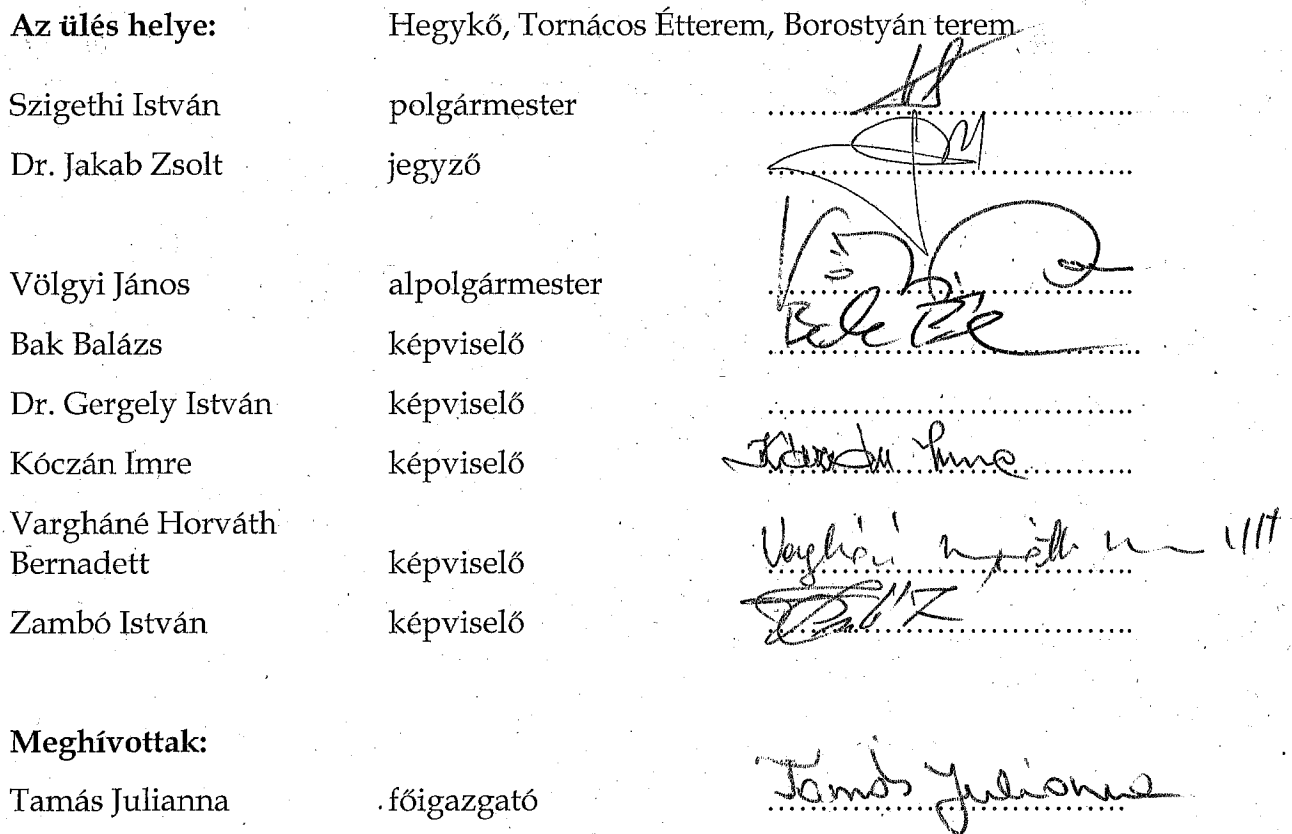 Az ülés helye: Hegykő, Tornácos Étterem, Borostyán terem
Szigethi István polgármester
Dr. Jakab Zsolt jegyző
Völgyi János alpolgármester
Bak Balázs képviselő
Dr. Gergely István képviselő
Kóczán Imre képviselő
Vargháné Horváth
Bernadett képviselő
Zambó István képviselő
Meghívottak:
Tamás Julianna főigazgató Tamás Julianna